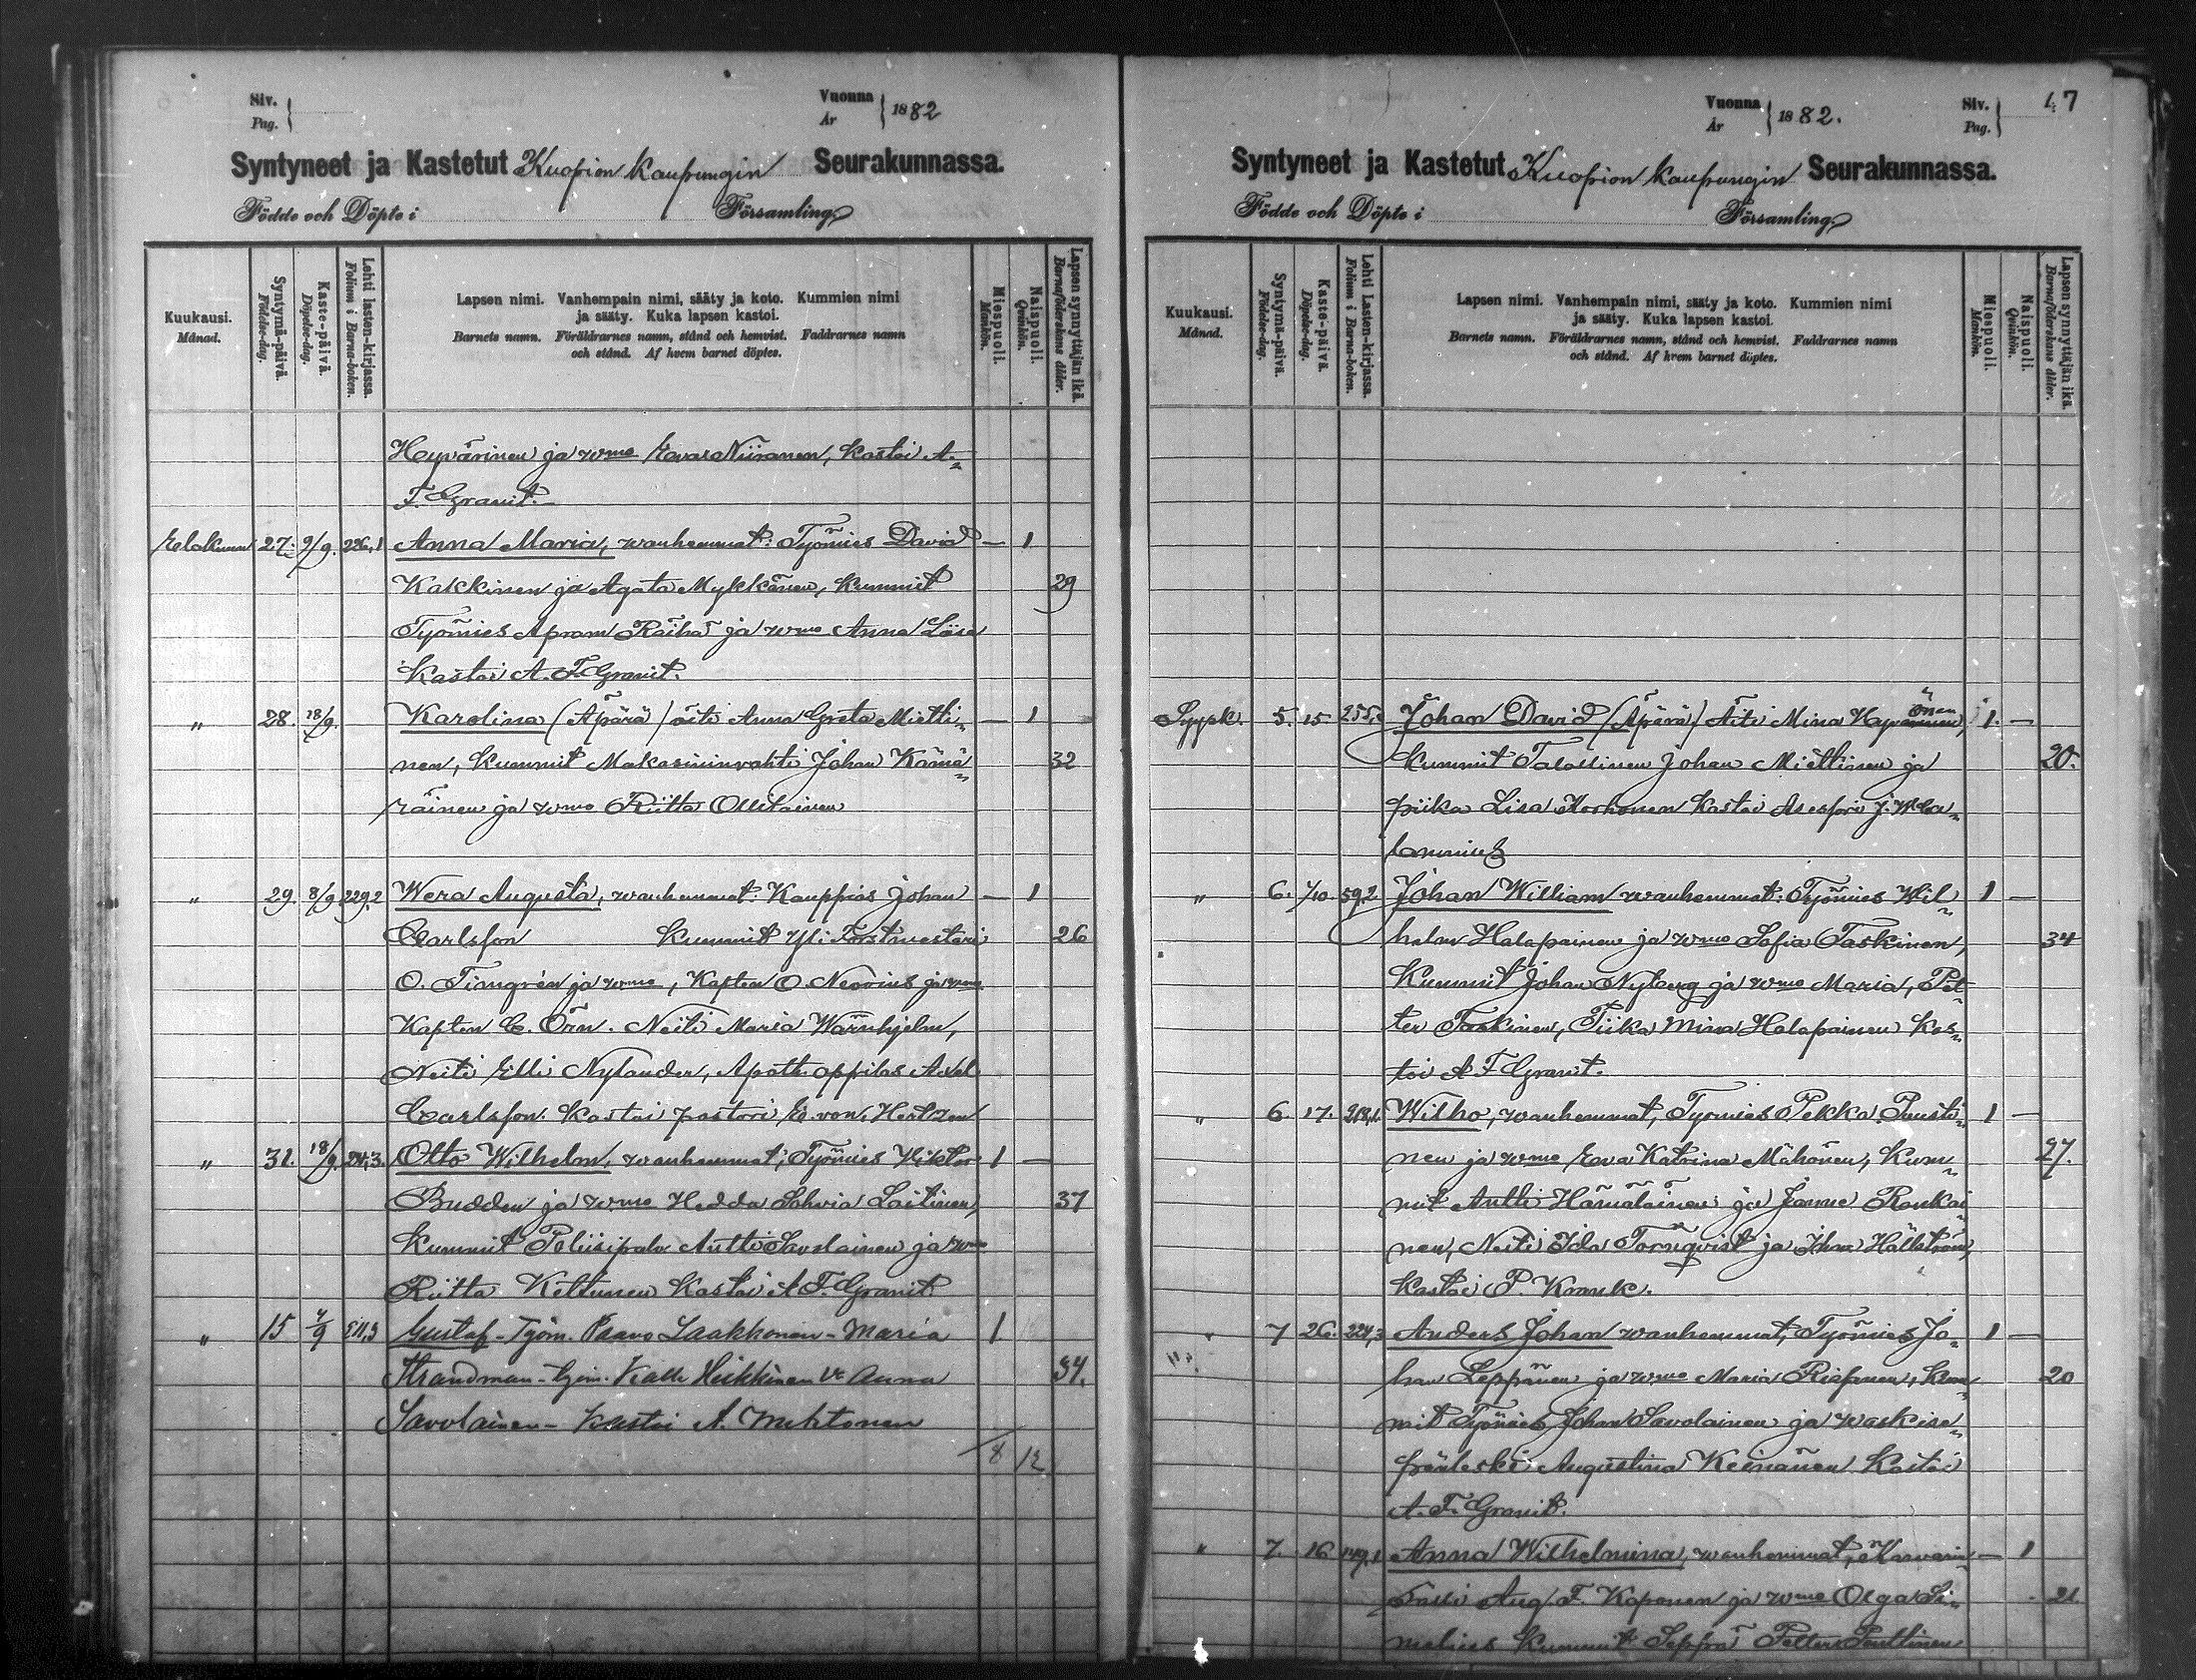 Siv.
Pag.
Vuonna
År
1882
Syntyneet ja Kastetut Kuopion kaupungin Seurakunnassa.
Födde och Döpte i Församling
Kuukausi.
Månad.
Syntymä-päivä.
Födelse-dag.
Kaste-päivä.
Döpelse-dag.
Lehti lasten-kirjassa.
Folium i Barna-boken.
Lapsen nimi. Vanhempain nimi, sääty ja koto. Kummien nimi
ja sääty. Kuka lapsen kastoi.
Barnets namn. Föräldrarnes namn, stånd och hemvist. Faddrarnes namn
och stånd. Af hvem barnet döptes.
Miespuoli.
Mankön.
Naispuoli.
Qvinkön.
Lapsen synnyttäjän ikä.
Barnaföderskans ålder.
Hyvärinen ja wmo Eva Niiranen, Kastoi A.
F. Granit.
Elokuun 27. 9/9. 226,1 Anna Maria, wanhemmat: Työmies David — 1
Kakkinen ja Agata Mykkänen, Kummit 29
Työmies Apram Räihä ja wmo Anna
Kastoi A. F. Granit.
" 28. 18/9. Karolina (Äpärä) äiti Anna Greta Mietti„ — 1
nen, Kummit Makasiininvahti Johan Kämä„ 32
räinen ja wmo Riitta Ollikainen
" 29. 8/9 229,2 Wera Augusta, wanhemmat: Kauppias Johan — 1
Carlsson Kummit Yli Forstmestari 26
O. Timgrén ja wmo, Kapten O. Neovius ja wmo
Kapten C. Örn. Neiti Maria Wärnhjelm,
Neiti Elli Nylander, Apoth. oppilas Axel
Carlsson. Kastoi pastori E. von Hertzen
" 31. 18/9. 24,3. Otto Wilhelm, wanhemmat, Työmies Viktor 1 —
Budden ja wmo Hedda Sohvia Laitinen, 37
Kummit Poliisipalv Antti Savolainen ja wmo
Riitta Kettunen Kastoi A F. Granit
" 15 4/9 Gustaf - Työm. Paavo Laakkonen - Maria 1.
Strandman - työm. Kalle Heikkinen Vo Anna 34.
Savolainen - Kastoi A. Muhtonen
8 12
Vuonna
År
1882.
Siv.
Pag.
47
Syntyneet ja Kastetut Kuopion kaupungin Seurakunnassa.
Födde och Döpte i Församling
Kuukausi.
Månad.
Syntymä-päivä.
Födelse-dag.
Kaste-päivä.
Döpelse-dag.
Lehti Lasten-kirjassa.
Folium i Barna-boken.
Lapsen nimi. Vanhempain nimi, sääty ja koto. Kummien nimi
ja sääty. Kuka lapsen kastoi.
Barnets namn. Föräldrarnes namn, stånd och hemvist. Faddrarnes namn
och stånd. Af hvem barnet döptes.
Miespuoli.
Mankön.
Naispuoli.
Qvinkön.
Lapsen synnyttäjän ikä.
Barnaföderskans ålder.
Syysk. 5. 15. 255, Johan David (Äpärä) Äiti Mina 1. —
Kummit Talollinen Johan Miettinen ja 20.
piika Lisa Korhonen Kastoi
" 6. 1/10. 59,2 Johan William wanhemmat: Työmies Wil„ 1 —
helm Halapainen ja wmo Sofia Taskinen, 34
Kummit Johan Nyberg ja wmo Maria, Pet„
ter Taskinen, Piika Mina Halapainen Kas„
toi A F Granit.
" 6. 17. 218,1. Wilho, wanhemmat, Työmies Pekka Pursti„ 1 —
nen ja wmo Eva Katrina Mähönen, Kum„ 27.
mit Antti Hämäläinen ja Janne Roukai„
nen, Neiti Ida Törnqvist ja Hällström,
Kastoi P. Krank.
" 7 26. 224,3 Anders Johan wanhemmat, Työmies Jo„ 1 —
han Leppänen ja wmo Maria Riepinen, Kum„ 20
mit Työmies Johan Savolainen ja waskise„
pänleski Augustina Keinänen Kastoi
A. F. Granit.
" 7. 16 149,1 Anna Wilhelmina, wanhemmat, — 1
Aug. F. Koponen ja wmo Olga Si„ 21
melius Kummit Seppä Petter Penttinen